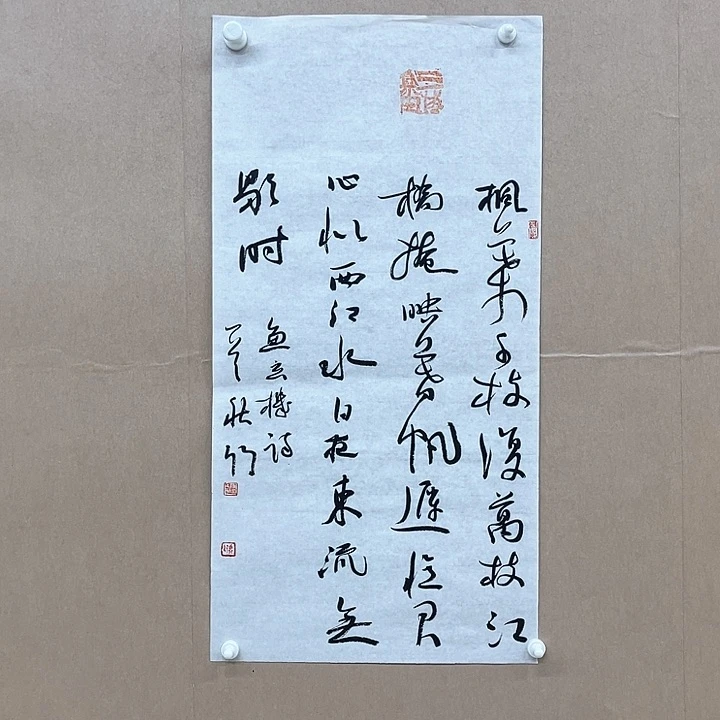 楓葉千枝復萬枝江
橋掩映暮帆遲憶君
心似西江水日夜東流無
歇时
魚玄機詩
秋竹